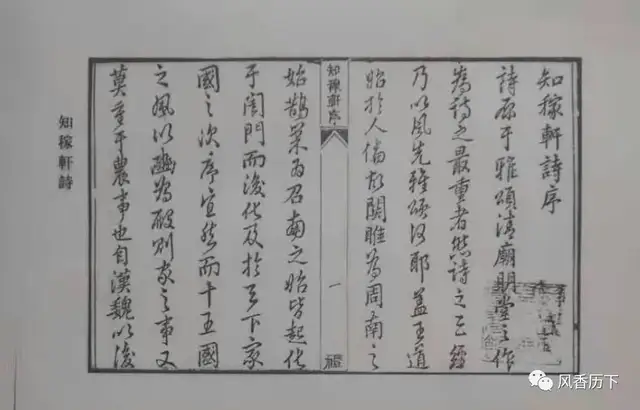 知稼軒詩序
詩原于雅頌清廟明堂之作
為詩之最重者然詩之正經
乃以風先雅頌何耶蓋王道
始於人倫故關雎為周南之
知稼軒序
一
始鵲巢為召南之始皆起化
于閨門而後化及於天下家
國之次序宜然而十五國
之風以豳為殿則家之事又
莫重于農事也自漢魏以後
知稼軒詩
风香历下